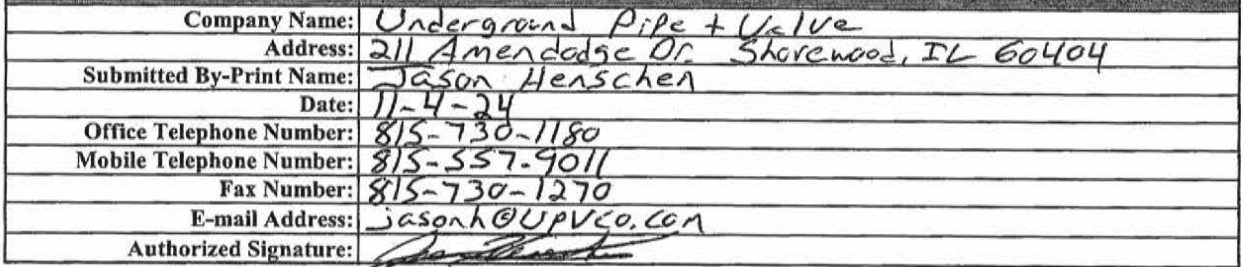 Company Name: Underground Pipe + Valve
Address: 211 Amendodge Dr. Shorewood, IL 60404
Submitted By-Print Name: Jason Henschen
Date: 11-4-24
Office Telephone Number: 815-730-1180
Mobile Telephone Number: 815-557-9011
Fax Number: 815-730-1270
E-mail Address: jasonh@UPVCO.com
Authorized Signature: